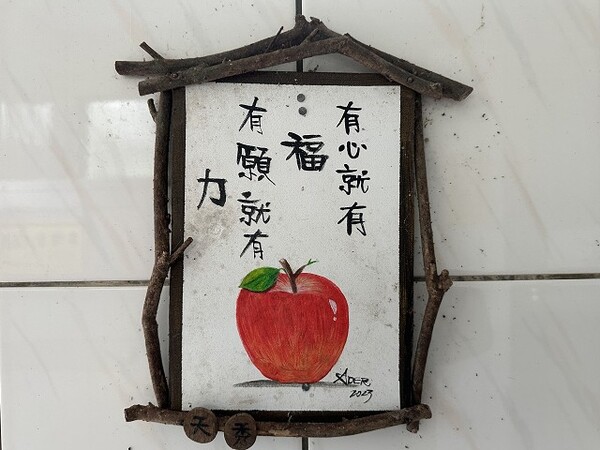 有心就有
福
有願就有
力
ADER
2023
天秀